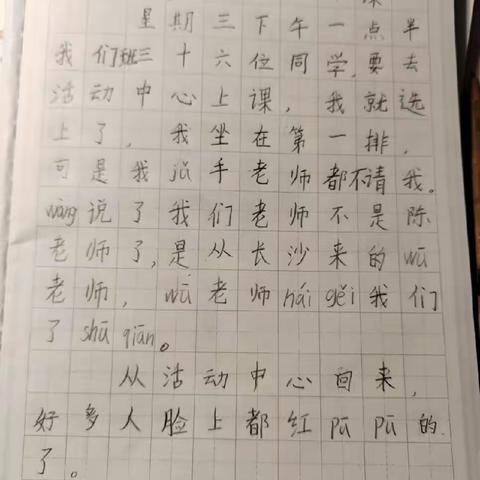 课
星期三下午一点半
我们班三十六位同学,要去
活动中心上课,我就选
上了,我坐在第一排,
可是我jǔ手老师都不请我。
wàng说了我们老师不是陈
老师了,是从长沙来的wū
老师,wū老师hái gěi我们
了shū qiān。
从活动中心回来,
好多人脸上都红pū pū的
了。